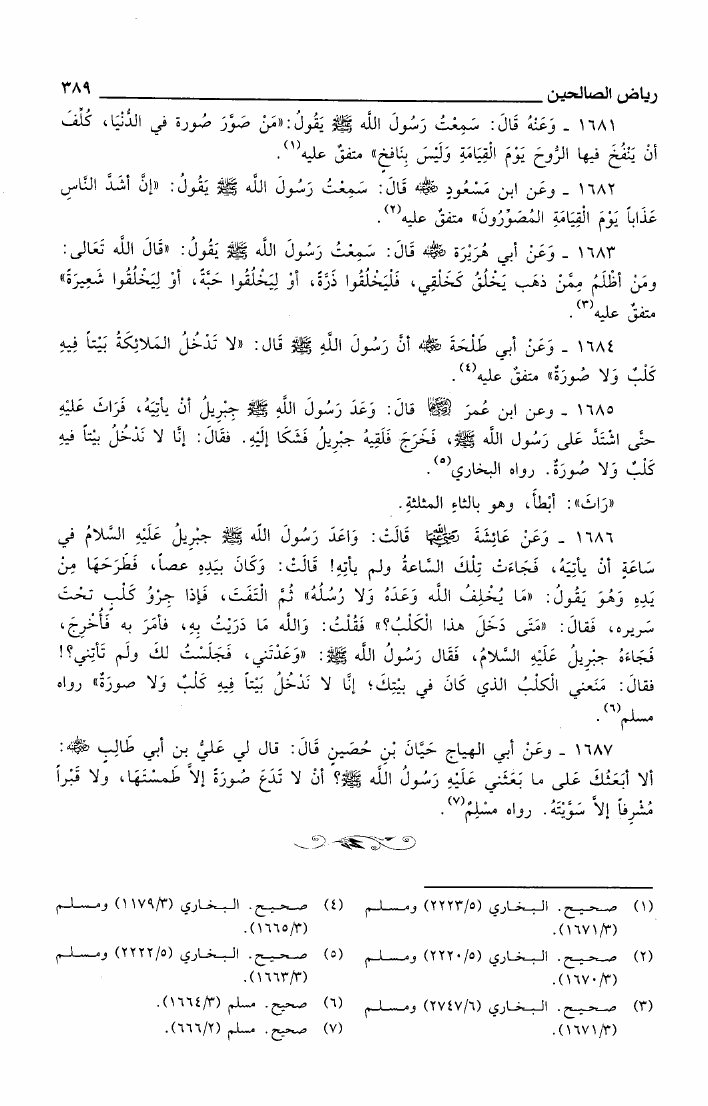 رياض الصالحين ٣٨٩
١٦٨١ ـ وَعَنْهُ قَالَ: سَمِعْتُ رَسُولَ الله ﷺ يَقُولُ: «مَنْ صَوَّرَ صُورة في الدُّنْيَا، كُلِّفَ
أنْ يَنْفُخَ فيها الرُّوحَ يَوْمَ الْقِيَامَةِ وَلَيْسَ بِنَافخٍ» متفقٌ عليه(١).
١٦٨٢ ـ وعَن ابن مَسْعُودٍ رضي الله عنه قَالَ: سَمِعْتُ رَسُولَ الله ﷺ يَقُولُ: «إنَّ أشَدَّ النَّاسِ
عَذَاباً يَوْمَ الْقِيَامَةِ المُصَوِّرُونَ» متفقٌ عليه(٢).
١٦٨٣ ـ وَعَنْ أبي هُرَيْرَة رضي الله عنه قَالَ: سَمِعْتُ رَسُولَ الله ﷺ يَقُولُ: «قَالَ الله تَعَالى:
ومَنْ أظْلَمُ مِمَّنْ ذهَب يَخْلُقُ كَخَلْقِي، فَلْيَخْلُقُوا ذَرَّةً، أوْ لِيَخْلُقُوا حَبَّةً، أوْ لِيَخْلُقُوا شَعِيرَةً»
متفقٌ عليه(٣).
١٦٨٤ ـ وَعَنْ أبي طَلْحَةَ رضي الله عنه أنَّ رَسُولَ اللهِ ﷺ قَال: «لا تَدْخُلُ المَلائِكَةُ بَيْتاً فِيهِ
كَلْبٌ وَلا صُورَةٌ» متفقٌ عليه(٤).
١٦٨٥ ـ وعن ابن عُمرَ رضي الله عنهما قالَ: وَعَدَ رَسُولَ اللهِ ﷺ جِبْرِيلُ أنْ يأتِيَهُ، فَرَاثَ عَليْهِ
حتَّى اشْتَدَّ عَلى رَسُولِ الله ﷺ، فَخَرَجَ فَلَقِيَهُ جِبْرِيلُ فَشَكَا إلَيْهِ. فقَالَ: إنَّا لا نَدْخُلُ بَيْتاً فيهِ
كَلْبٌ وَلا صُورَةٌ. رواه البخاري(٥).
«رَاثَ»: أبْطأَ، وهو بالثاءِ المثلثةِ.
١٦٨٦ ـ وَعَنْ عَائِشَةَ رضي الله عنها قَالَتْ: وَاعَدَ رَسُولَ اللهِ ﷺ جبْرِيلُ عَلَيْهِ السَّلامُ في
سَاعَةٍ أنْ يأتِيَهُ، فَجَاءَت تِلْكَ السَّاعةُ ولم يأتِهِ! قَالَتْ: وَكَانَ بيَدِهِ عصاً، فَطَرَحَهَا مِنْ
يَدِهِ وَهُوَ يَقُولُ: «مَا يُخْلِفُ الله وَعَدَهُ وَلا رُسُلُهُ» ثُمَّ الْتَفَتَ، فَإذا جِرْوُ كَلْبٍ تحْتَ
سَريره، فقالَ: «مَتَى دَخَلَ هذا الْكَلْبُ؟» فَقُلْتُ: وَالله مَا دَرَيْتُ بِهِ، فأمَرَ به فَأُخْرِجَ،
فَجَاءَهُ جِبْرِيلُ عَلَيْهِ السَّلامُ، فَقَال رَسُولُ الله ﷺ: «وَعَدْتَني، فَجَلَسْتُ لكَ ولم تَأتِني؟!
فقالَ: مَنَعني الْكلْبُ الذي كَانَ في بيْتِكَ؛ إنَّا لا نَدْخُلُ بَيْتاً فِيهِ كَلْبٌ وَلا صورَةٌ» رواه
مسلم(٦).
١٦٨٧ ـ وعَنْ أبي الهياجِ حَيَّانَ بْنِ حُصَينٍ قَالَ: قال لي عَليُّ بن أبي طَالِبٍ رضي الله عنه:
ألا أبَعَثُكَ عَلى ما بَعَثَني عَلَيْهِ رَسُولُ اللهِ ﷺ؟ أنْ لا تَدَعَ صُورَةً إلاَّ طَمسْتَهَا، ولا قَبْراً
مُشْرِفاً إلاَّ سَوَّيْتَهُ. رواه مسْلِمٌ(٧).
(١) صحيح. البخاري (٢٢٢٣/٥) ومسلم
(١٦٧١/٣).
(٢) صحيح. البخاري (٢٢٢٠/٥) ومسلم
(١٦٧٠/٣).
(٣) صحيح. البخاري (٢٧٤٧/٦) ومسلم
(١٦٧١/٣).
(٤) صحيح. البخاري (١١٧٩/٣) ومسلم
(١٦٦٥/٣).
(٥) صحيح. البخاري (٢٢٢٢/٥) ومسلم
(١٦٦٣/٣).
(٦) صحيح. مسلم (١٦٦٤/٣).
(٧) صحيح. مسلم (٦٦٦/٢).